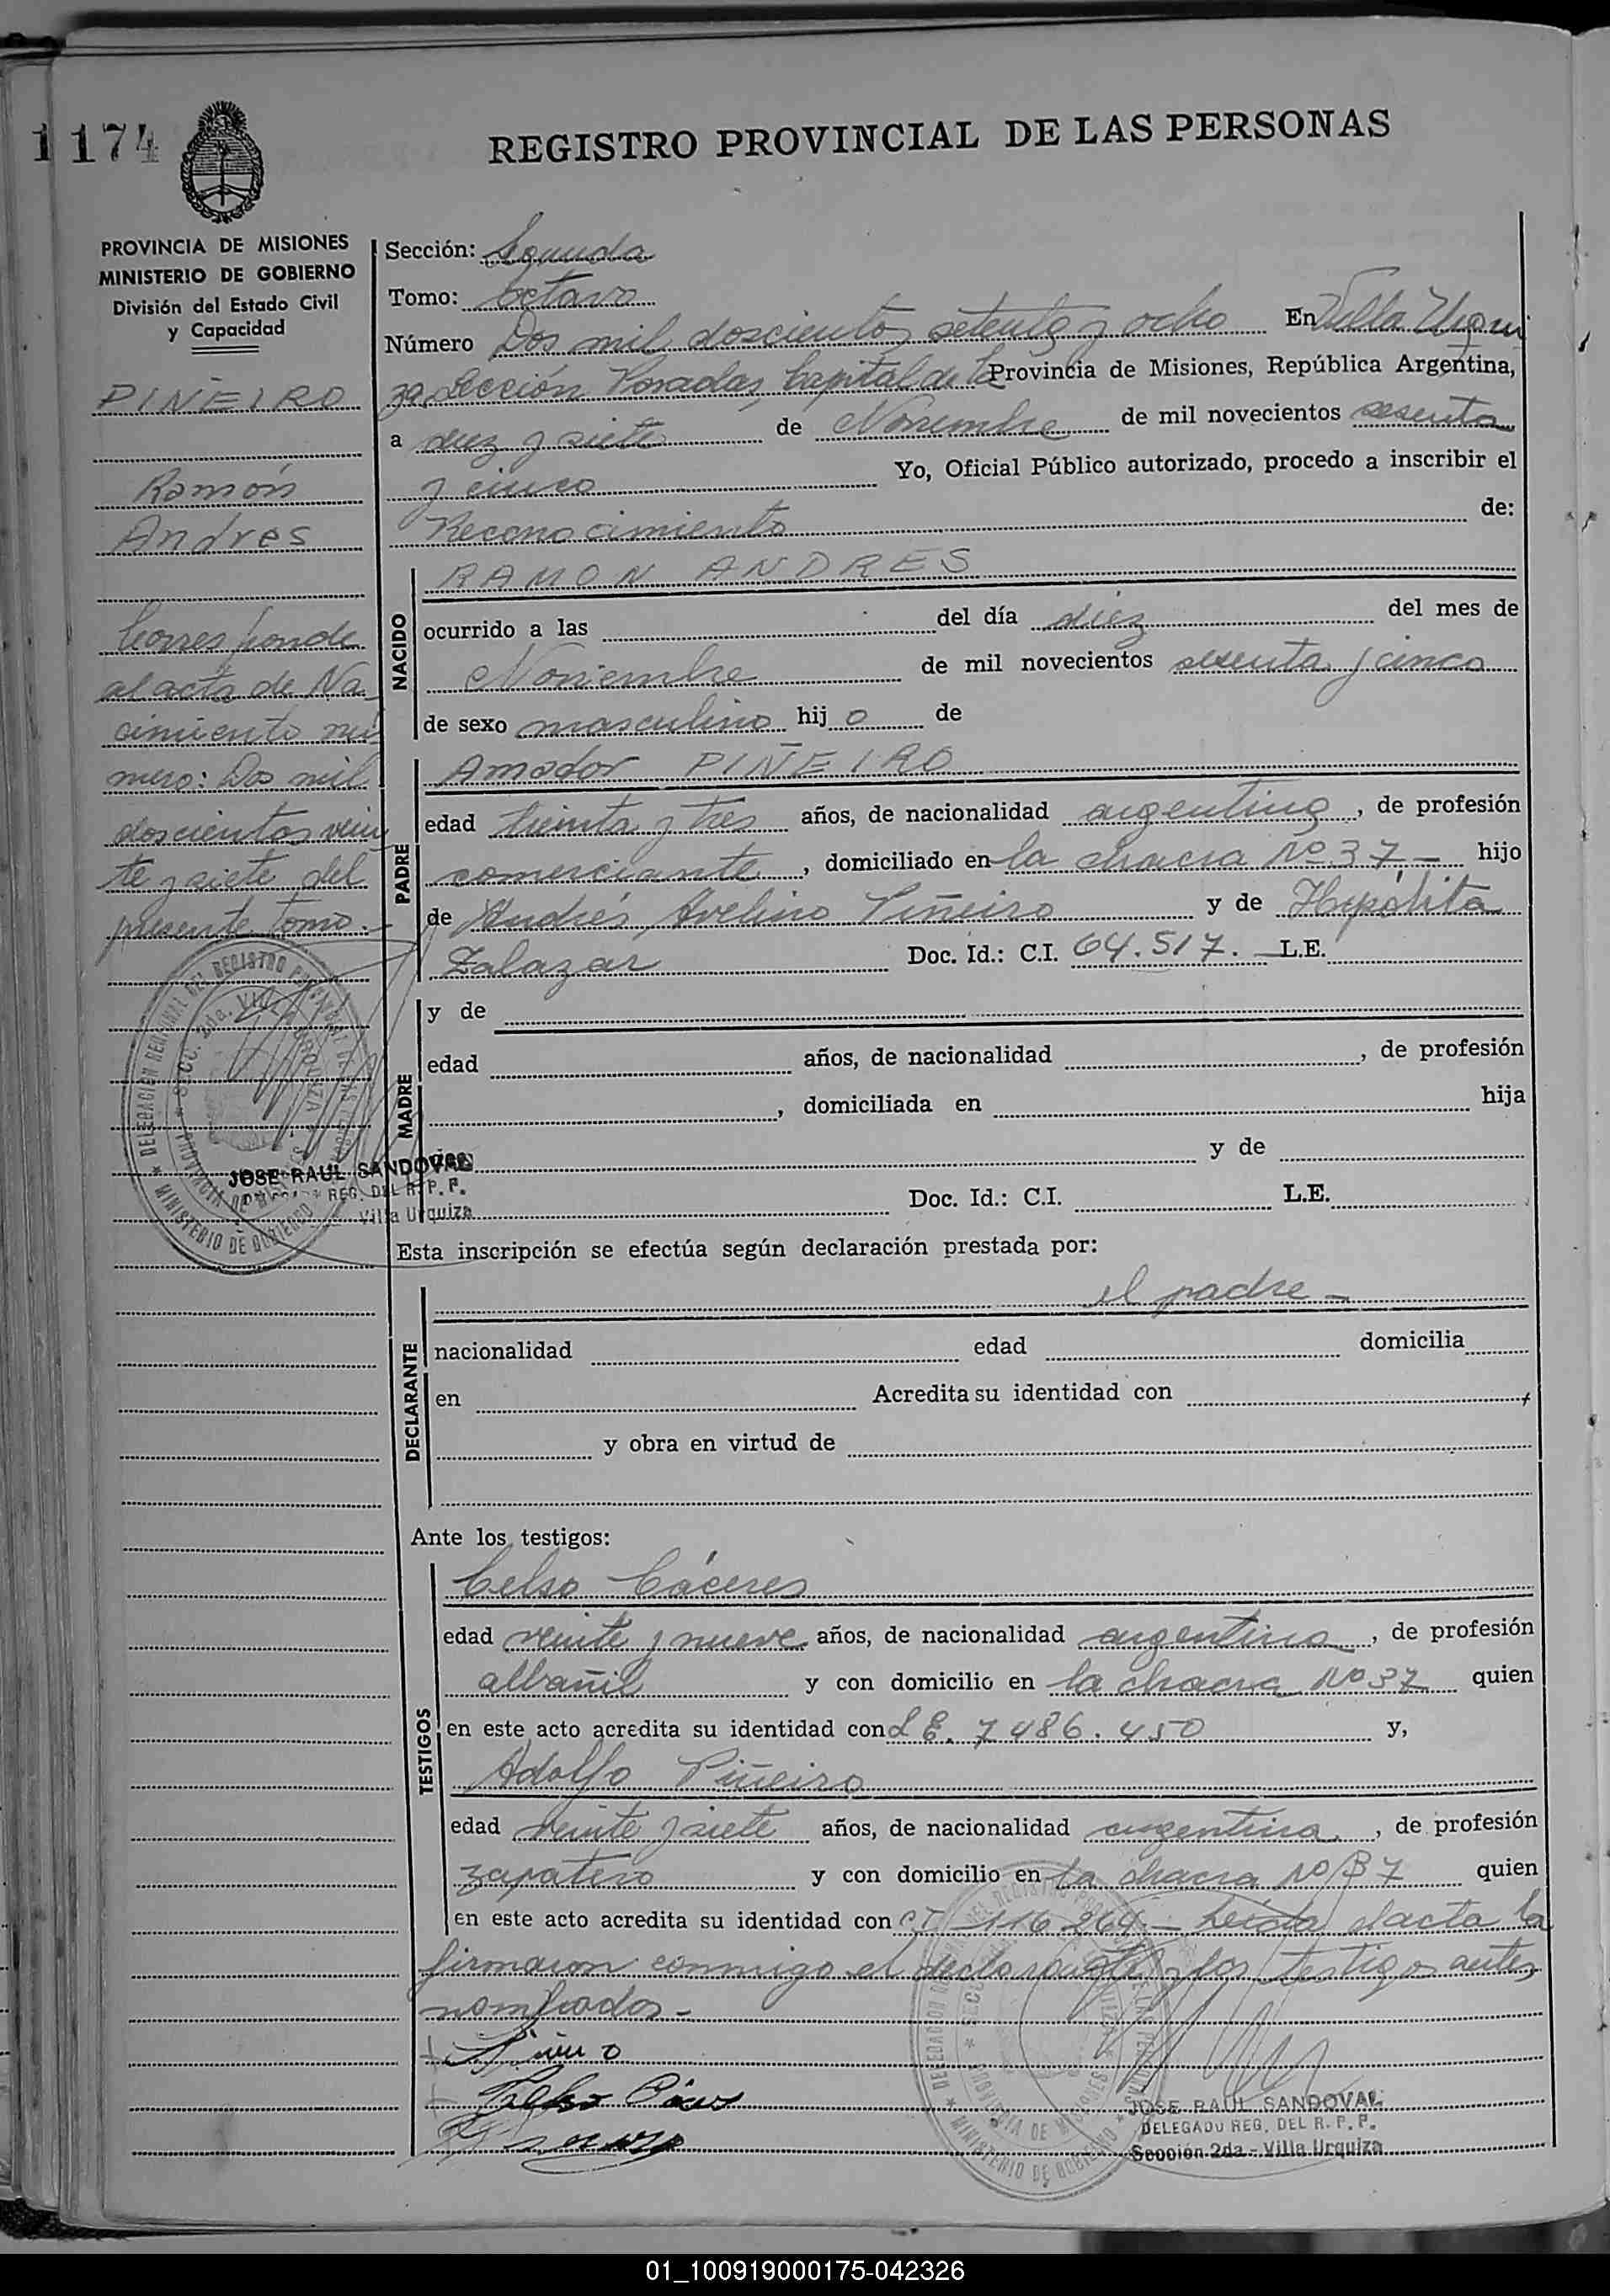 1 1174
REGISTRO PROVINCIAL DE LAS PERSONAS
PROVINCIA DE MISIONES
MINISTERIO DE GOBIERNO
División del Estado Civil
y Capacidad
PIÑEIRO
Ramón
Andres
Corresponde
al acta de Na
cimiento nú
mero: Dos mil
doscientos vein
te y siete del
presente tomo.-
JOSE RAUL SANDOVAL
REG. DEL R. P. P.
Villa Urquiza
Sección: Segunda
Tomo: Octavo
Número Dos mil doscientos setenta y ocho En Villa Urqui
za, Sección Posadas, Capital de la Provincia de Misiones, República Argentina,
a diez y siete de Noviembre de mil novecientos sesenta
y cinco Yo, Oficial Público autorizado, procedo a inscribir el
Reconocimiento de:
NACIDO
RAMON ANDRES
ocurrido a las del día diez del mes de
Noviembre de mil novecientos sesenta y cinco
de sexo masculino hijo de
PADRE
Amador PIÑEIRO
edad treinta y tres años, de nacionalidad argentina, de profesión
comerciante, domiciliado en la chacra Nº 37.- hijo
de Andrés Avelino Piñeiro y de Hipólita
Zalazar Doc. Id.: C.I. 64.517.- L.E.
MADRE
y de
edad años, de nacionalidad , de profesión
, domiciliada en hija
de y de
Doc. Id.: C.I. L.E.
Esta inscripción se efectúa según declaración prestada por:
DECLARANTE
el padre -
nacionalidad edad domicilia
en Acredita su identidad con
y obra en virtud de
Ante los testigos:
TESTIGOS
Celso Cáceres
edad veinte y nueve años, de nacionalidad argentina, de profesión
albañil y con domicilio en la chacra Nº 37 quien
en este acto acredita su identidad con L E. 7486.450 y,
Adolfo Piñeiro
edad veinte y siete años, de nacionalidad argentina, de profesión
zapatero y con domicilio en la chacra Nº 37 quien
en este acto acredita su identidad con C.I. 116.264.- Leida el acta la
firmaron conmigo el declarante y los testigos antes
nombrados.-
JOSE RAUL SANDOVAL
DELEGADO REG. DEL R. P. P.
Sección 2da - Villa Urquiza
01_100919000175-042326